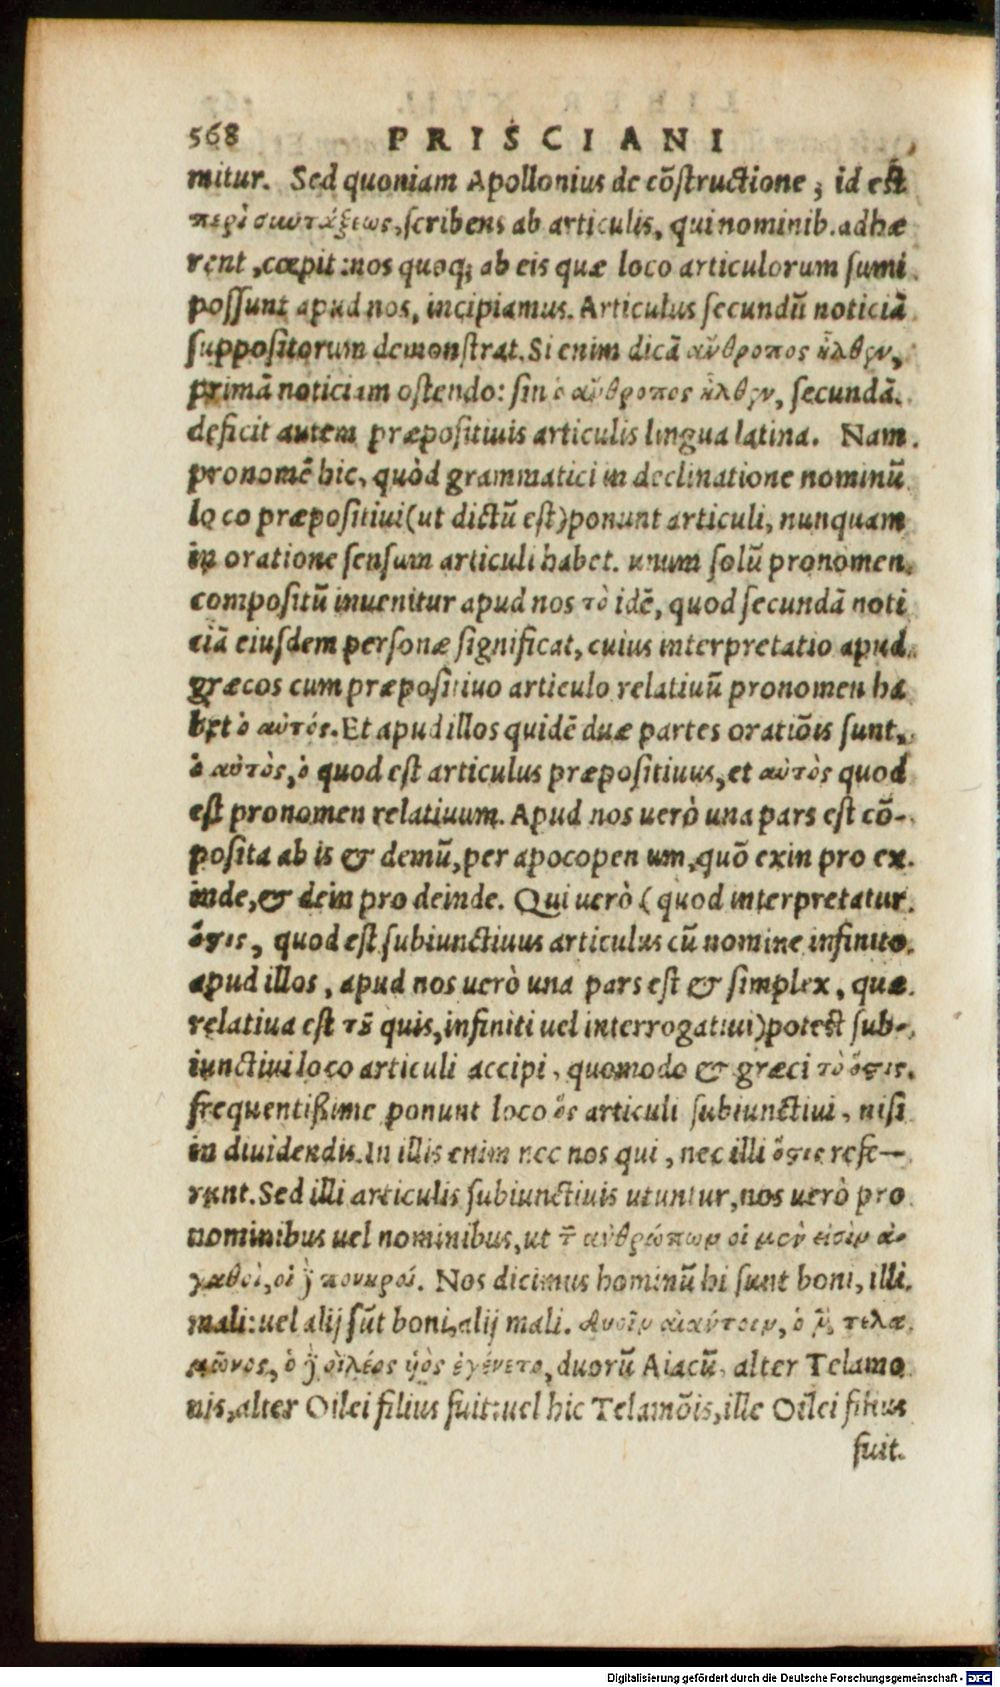 568 PRISCIANI
mitur. Sed quoniam Apollonius de cõstructione, id est
περὶ συντάξεως, scribens ab articulis, qui nominib. adhæ
rent, cœpit: nos quoq; ab eis quæ loco articulorum sumi
possunt apud nos, incipiamus. Articulus secundũ noticiã
suppositorum demonstrat. Si enim dicã ἄνθροπος ἦλθεν,
primã noticiam ostendo: sin ὁ ἄνθροπος ἦλθεν, secundã.
deficit autem præpositiuis articulis lingua latina. Nam
pronomẽ hic, quòd grammatici in declinatione nominũ
loco præpositiui (ut dictũ est) ponunt articuli, nunquam
in oratione sensum articuli habet. unum solũ pronomen
compositũ inuenitur apud nos τὸ idẽ, quod secundã noti
ciã eiusdem personæ significat, cuius interpretatio apud
græcos cum præpositiuo articulo relatiuũ pronomen ha
bet ὁ αὐτός. Et apud illos quidẽ duæ partes oratiõis sunt,
ὁ αὐτὸς, ὁ quod est articulus præpositiuus, et αὐτὸς quod
est pronomen relatiuum. Apud nos uerò una pars est cõ-
posita ab is & demũ, per apocopen um, quõ exin pro ex
inde, & dein pro deinde. Qui uerò (quod interpretatur
ὅστις, quod est subiunctiuus articulus cũ nomine infinito
apud illos, apud nos uerò una pars est & simplex, quæ
relatiua est τοῦ quis, infiniti uel interrogatiui) potest sub-
iunctiui loco articuli accipi, quomodo & græci τὸ ὅστις
frequentißime ponunt loco ὃς articuli subiunctiui, nisi
in diuidendis. In illis enim nec nos qui, nec illi ὅστις refe-
runt. Sed illi articulis subiunctiuis utuntur, nos uerò pro
nominibus uel nominibus, ut τῶν ἀνθρώπων οἱ μὲν εἰσὶν ἀ-
γαθοὶ, οἱ δὲ πονηροί. Nos dicimus hominũ hi sunt boni, illi
mali: uel alij sũt boni, alij mali. δυοῖν αἰάντοιν, ὁ μὲν τελα
μῶνος, ὁ δὲ οἰλέος ὑὸς ἐγένετο, duorũ Aiacũ, alter Telamo
nis, alter Oilei filius fuit: uel hic Telamõis, ille Oilei filius
fuit.
Digitalisierung gefördert durch die Deutsche Forschungsgemeinschaft - DFG